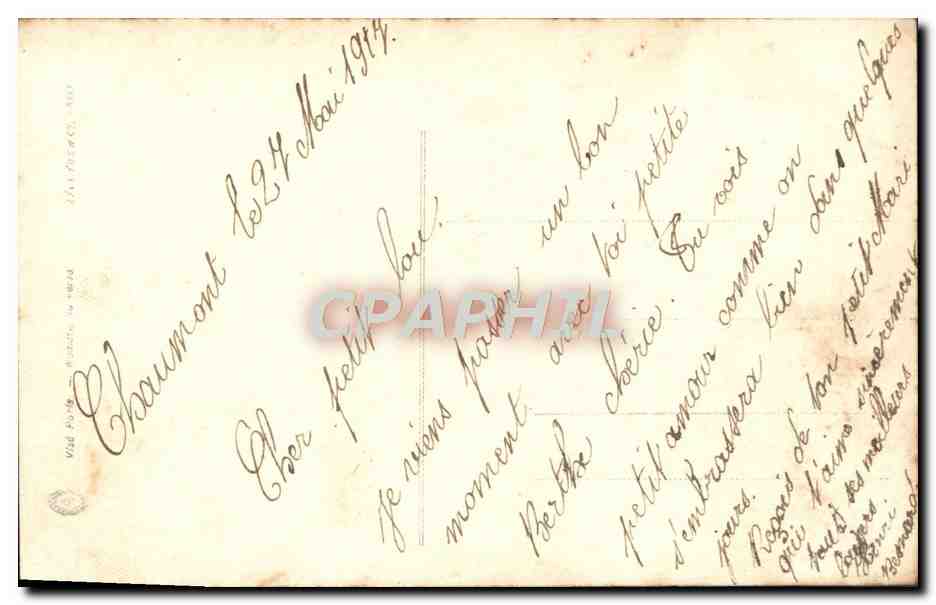 Chaumont le 27 Mai 1917.
Cher petit lou.
Je viens passer un bon
moment avec toi petite
Berthe chérie. Tu vois
petit amour comme on
s'embrassera bien dans quelques
jours.
Reçois de ton petit Mari
qui t'aime sincerement
tous ses meilleurs
baisers
Henri
Besnard
Visé Paris
CPAPHIL